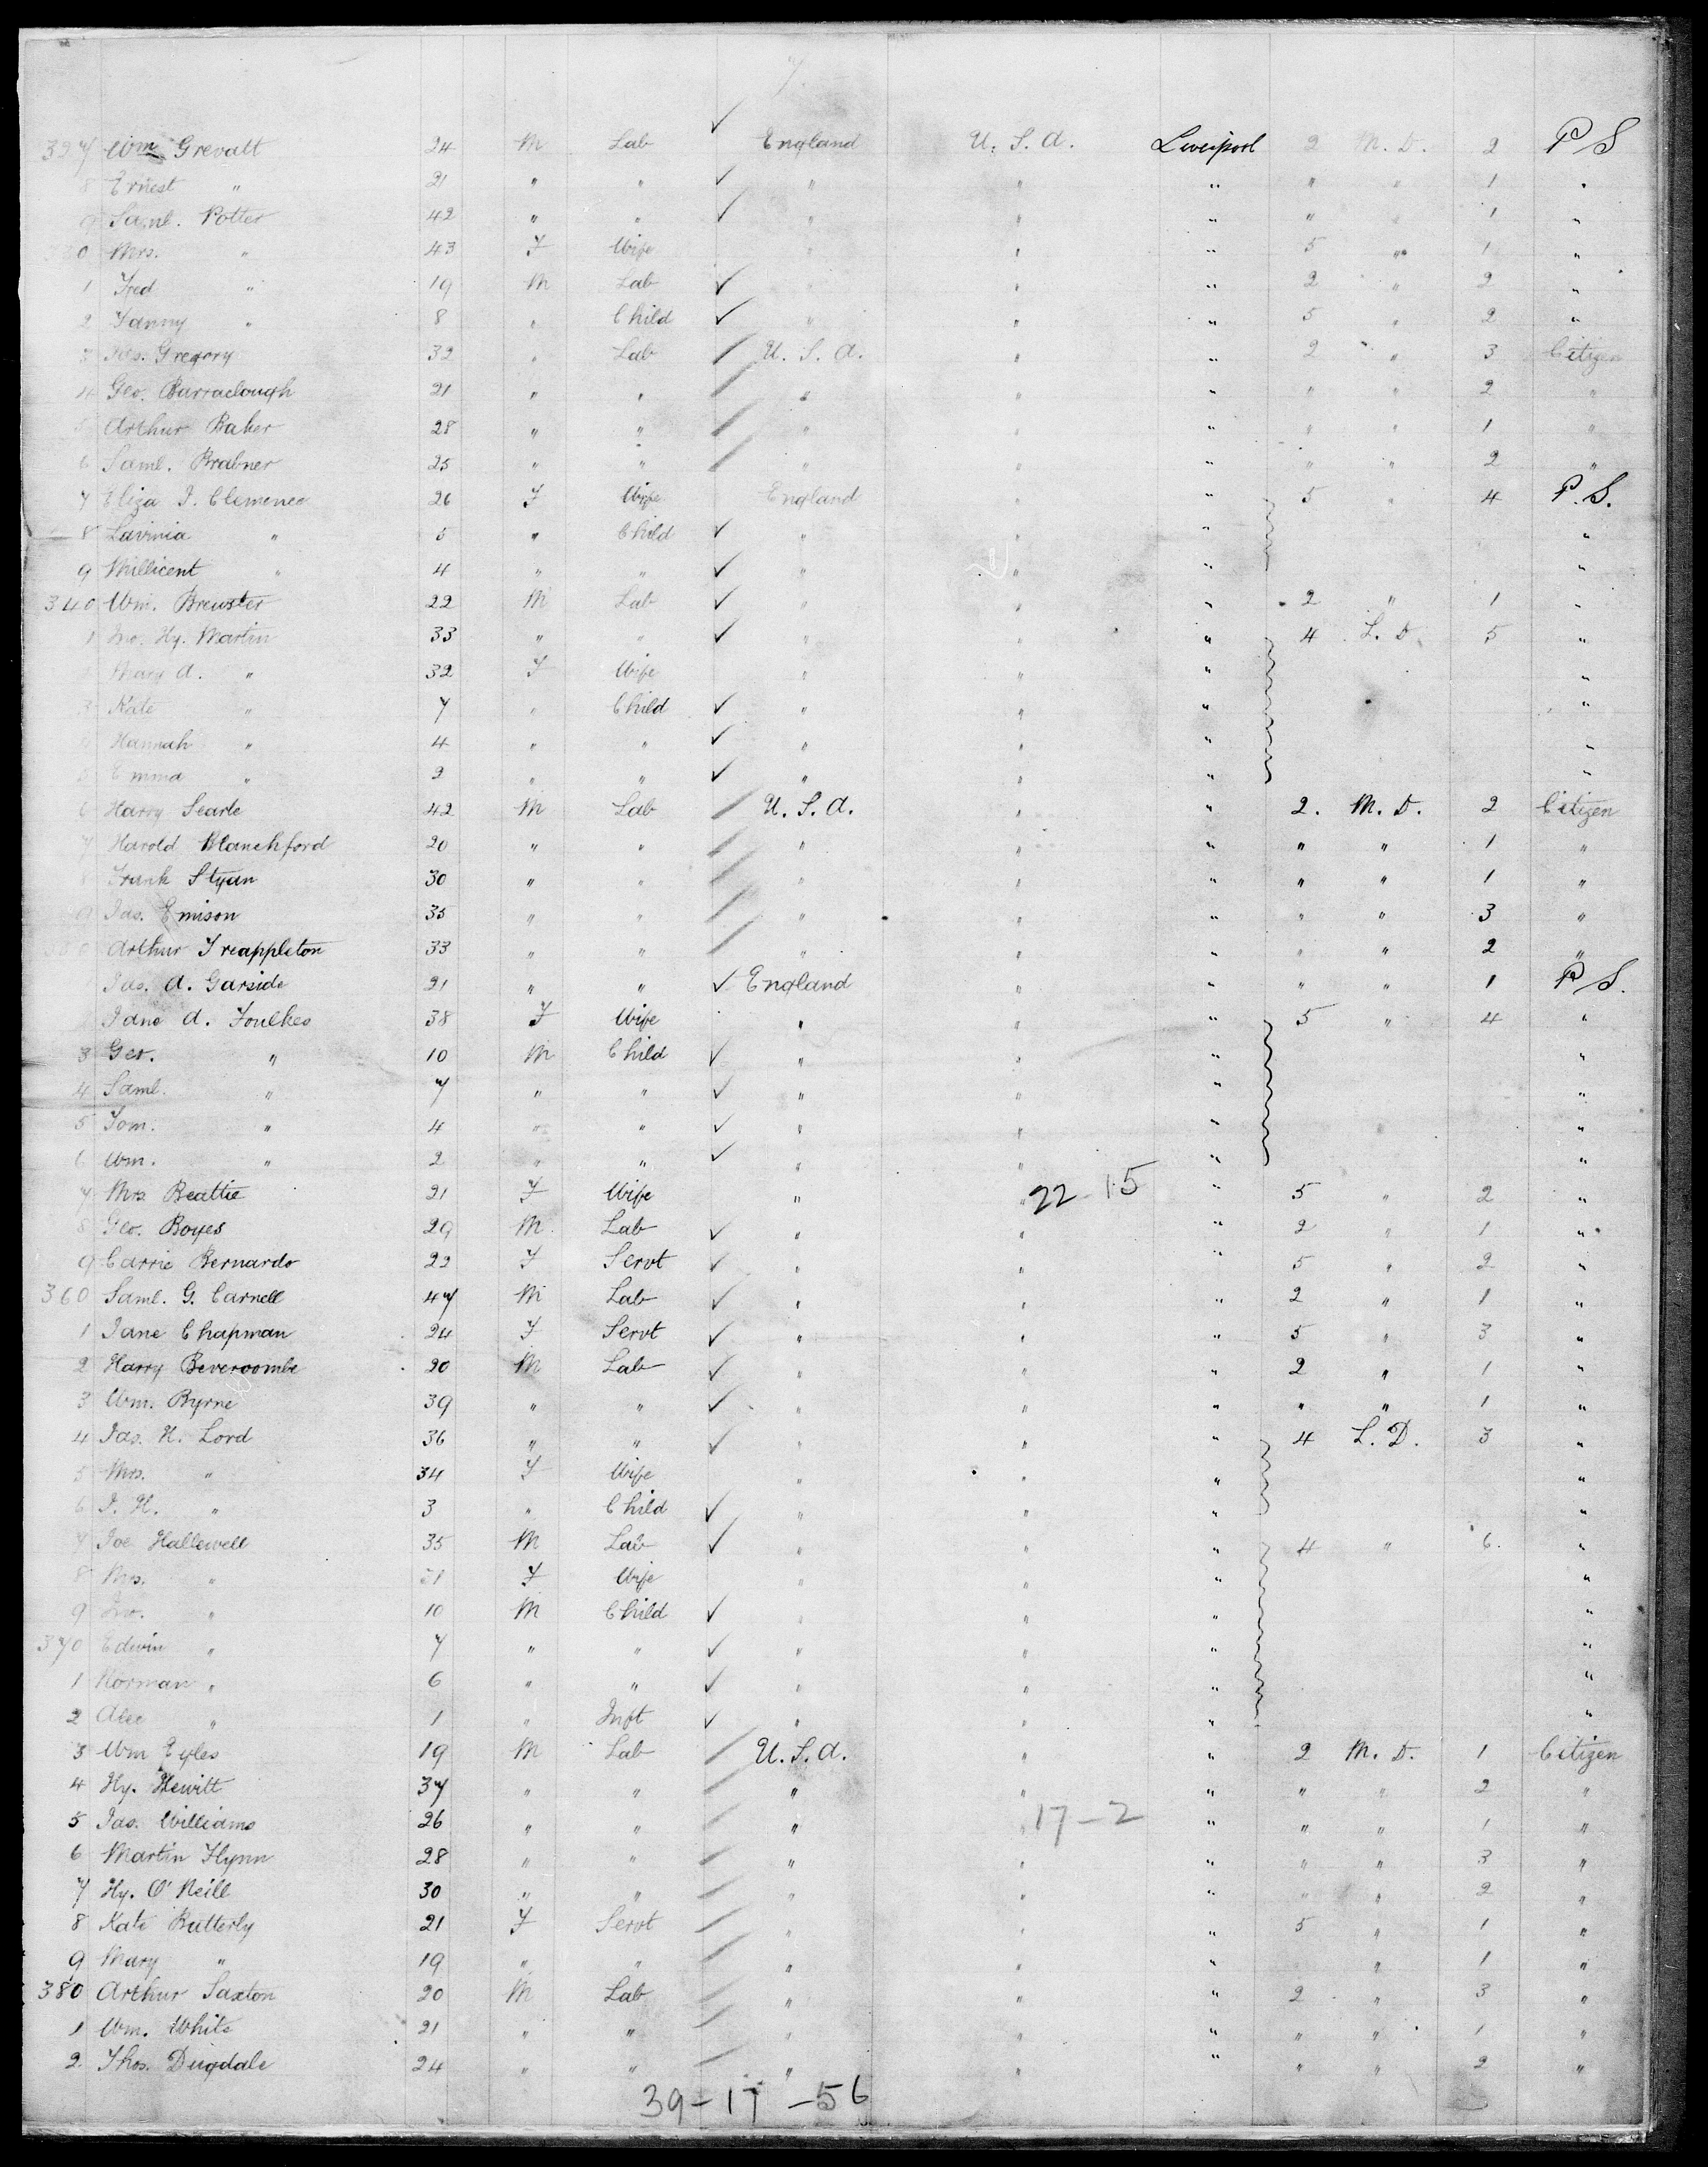 7.
327 Wm Grevatt 24 M Lab ✓ England U. S. A. Liverpool 2 M. D. 2 P S
8 Ernest " 21 " " ✓ " " " " " 1 "
9 Saml. Potter 42 " " ✓ " " " " " 1 "
0 Mrs. " 43 F Wife " " " 5 " 1 "
1 Fred " 19 M Lab ✓ " " " 2 " 2 "
2 Fanny " 8 " Child ✓ " " " 5 " 2 "
3 Jas. Gregory 32 " Lab / U. S. A. " " 2 " 3 Citizen
4 Geo. Barraclough 21 " " / " " " " " 2 "
5 Arthur Baker 28 " " / " " " " " 1 "
6 Saml. Brabner 25 " " / " " " " " 2 "
7 Eliza J. Clemence 26 F Wife England " " 5 " 4 P. S.
8 Lavinia " 5 " Child ✓ " " " "
9 Millicent " 4 " " ✓ " " " "
340 Wm. Brewster 22 M Lab ✓ " " " 2 " 1 "
1 Jno. Hy. Martin 33 " " ✓ " " " 4 L. D. 5 "
2 Mary A. " 32 F Wife " " " "
3 Kate " 7 " Child ✓ " " " "
4 Hannah " 4 " " ✓ " " " "
5 Emma " 2 " " ✓ " " " "
6 Harry Searle 42 M Lab / U. S. A. " " 2. M. D. 2 Citizen
7 Harold Blanchford 20 " " / " " " " " 1 "
8 Frank Styan 30 " " / " " " " " 1 "
9 Jas. Emison 35 " " / " " " " " 3 "
350 Arthur Treappleton 33 " " / " " " " " 2 "
Jas. A. Garside 21 " " ✓ England " " " " 1 P S.
Jane A. Foulkes 38 F Wife " " " 5 " 4 "
3 Geo. " 10 M Child ✓ " " " "
4 Saml. " 7 " " ✓ " " " "
5 Tom. " 4 " " ✓ " " " "
6 Wm. " 2 " " ✓ " " " "
7 Mrs Beattie 21 F Wife " " 22-15 " 5 " 2 "
8 Geo. Boyes 29 M. Lab ✓ " " " 2 " 1 "
9 Carrie Bernardo 22 F Servt ✓ " " " 5 " 2 "
360 Saml. G. Carnell 47 M Lab ✓ " " " 2 " 1 "
1 Jane Chapman 24 F Servt ✓ " " " 5 " 3 "
2 Harry Beveroombe 20 M Lab ✓ " " " 2 " 1 "
3 Wm. Byrne 39 " " ✓ " " " " " 1 "
4 Jas. H. Lord 36 " " ✓ " " " 4 L. D. 3 "
5 Mrs. " 34 F Wife " " " "
6 J. H. " 3 " Child ✓ " " " "
7 Joe Hallewell 35 M Lab ✓ " " " 4 " 6. "
8 Mrs. " 31 F Wife " " " "
9 Jno. " 10 M Child ✓ " " " "
370 Edwin " 7 " " ✓ " " " "
1 Norman " 6 " " ✓ " " " "
2 Alec " 1 " Inft ✓ " " " "
3 Wm Eyles 19 M Lab / U. S. A. " " 2 M. D. 1 Citizen
4 Hy. Hewitt 37 " " / " " " " " 2 "
5 Jas. Williams 26 " " / " " 17-2 " " " 1 "
6 Martin Flynn 28 " " / " " " " " 3 "
7 Hy. O'Neill 30 " " / " " " " " 2 "
8 Kate Butterly 21 F Servt / " " " 5 " 1 "
9 Mary " 19 " " / " " " " 1 "
380 Arthur Saxton 20 M Lab / " " " 2 " 3 "
1 Wm. White 21 " " / " " " " " 1 "
2 Thos. Dugdale 24 " " / " " " " " 2 "
39-17-56